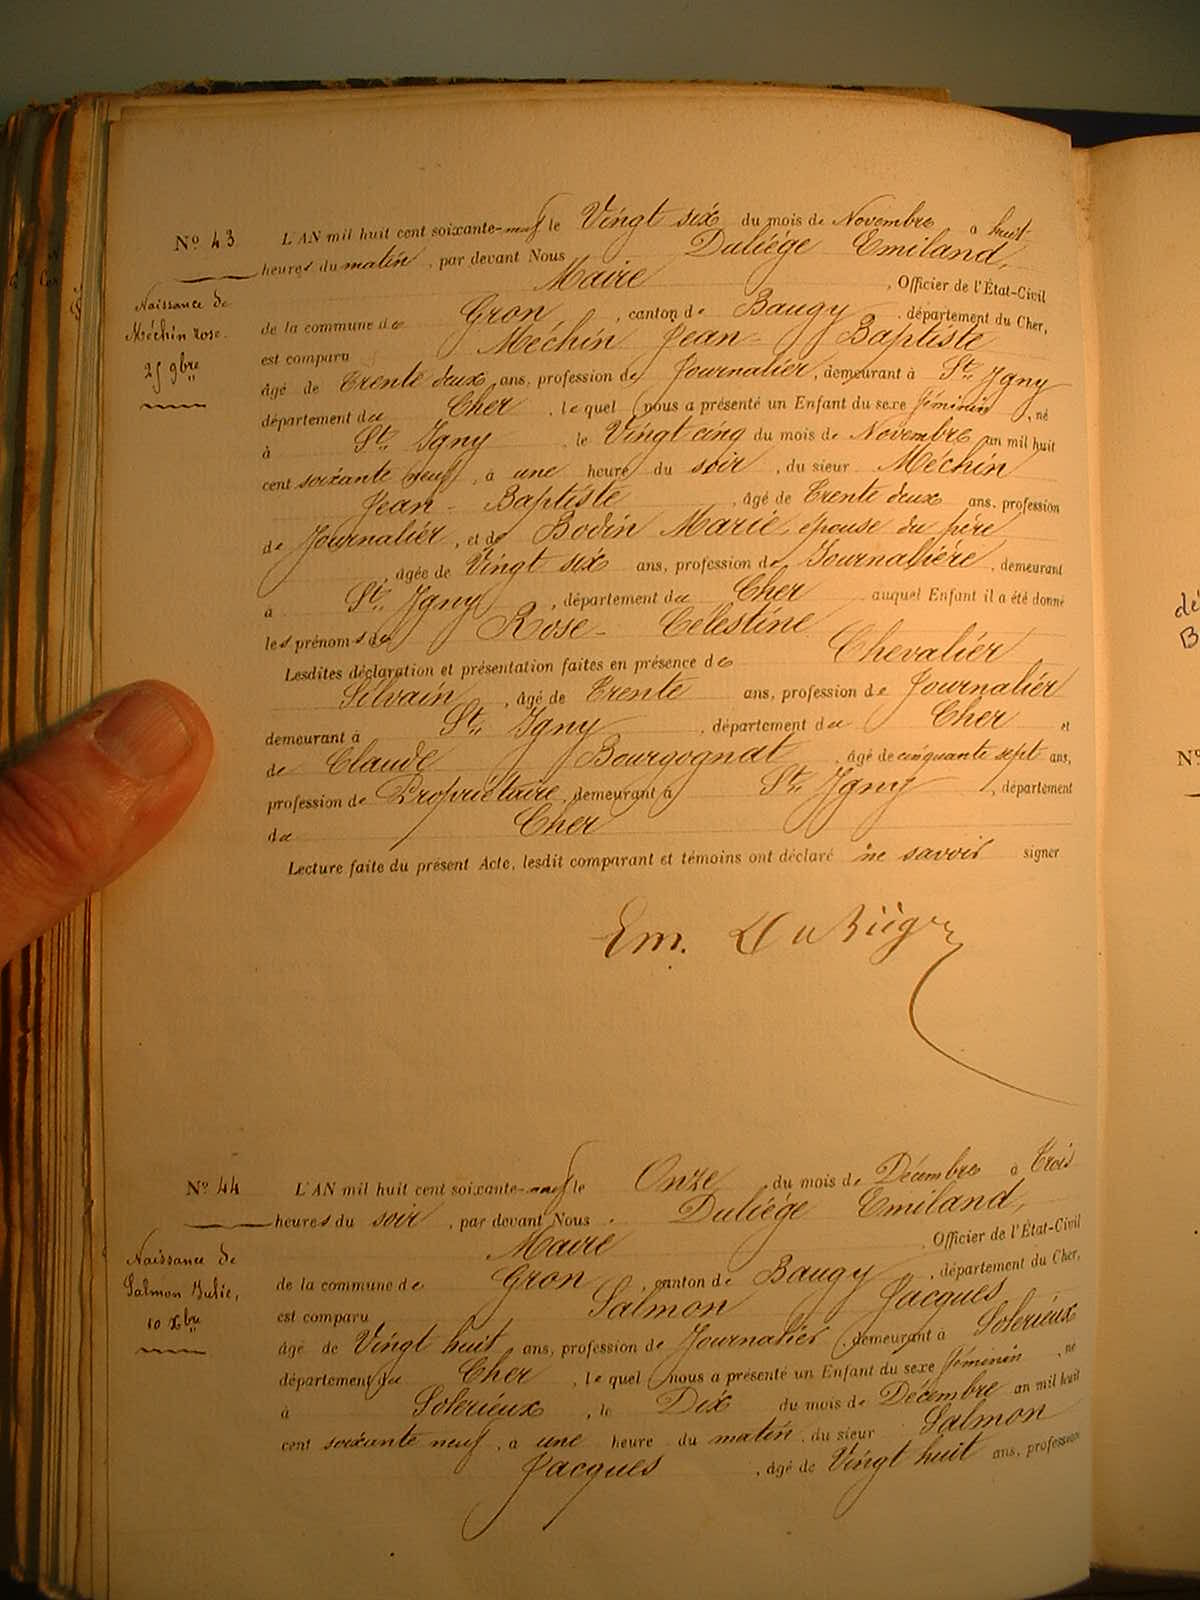 Nº 43 L'AN mil huit cent soixante-neuf le Vingt six du mois de Novembre à huit
heures du matin, par devant Nous Duliége Emiland,
Maire, Officier de l'État-Civil
Naissance de
Méchin Rose.
25 9bre
de la commune de Gron, canton de Baugy, département du Cher,
est comparu Méchin Jean-Baptiste
âgé de Trente deux ans, profession de Journalier, demeurant à St. Igny
département du Cher, lequel nous a présenté un Enfant du sexe féminin, né
à St. Igny, le Vingt cinq du mois de Novembre an mil huit
cent soixante neuf, à une heure du soir, du sieur Méchin
Jean-Baptiste, âgé de Trente deux ans, profession
de Journalier, et de Bodin Marie, épouse du père
, âgée de Vingt six ans, profession de Journalière, demeurant
à St. Igny, département du Cher auquel Enfant il a été donné
les prénoms de Rose-Célestine
Lesdites déclaration et présentation faites en présence de Chevalier
Silvain, âgé de Trente ans, profession de Journalier
demeurant à St. Igny, département du Cher et
de Claude Bourgognat, âgé de cinquante sept ans,
profession de Propriétaire, demeurant à St. Igny, département
du Cher
Lecture faite du présent Acte, lesdit comparant et témoins ont déclaré ne savoir signer
Em. Duliège
Nº 44 L'AN mil huit cent soixante-neuf le Onze du mois de Décembre à Trois
heures du soir, par devant Nous Duliége Emiland,
Maire, Officier de l'État-Civil
Naissance de
Salmon Julie,
10 Xbre
de la commune de Gron, canton de Baugy, département du Cher,
est comparu Salmon Jacques
âgé de Vingt huit ans, profession de Journalier, demeurant à Solerieux
département du Cher, lequel nous a présenté un Enfant du sexe féminin, né
à Solerieux, le Dix du mois de Décembre an mil huit
cent soixante neuf, à une heure du matin, du sieur Salmon
Jacques, âgé de Vingt huit ans, profession